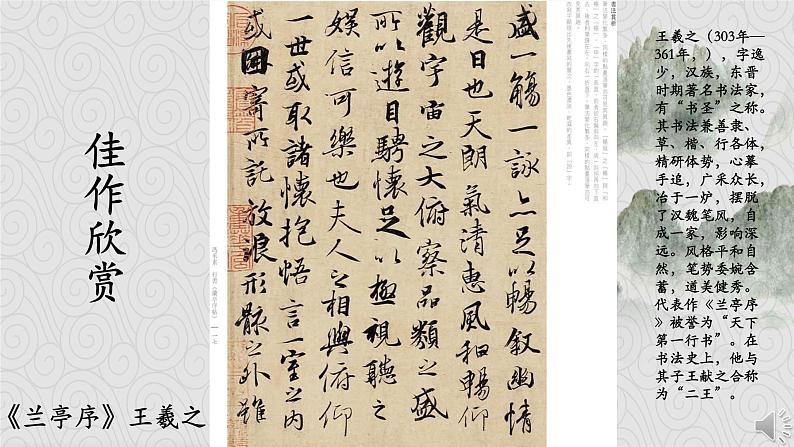 佳作欣赏
《兰亭序》王羲之
書法賞析
盛一觴一詠亦足以暢敘幽情
是日也天朗氣清惠風和暢仰
觀宇宙之大俯察品類之盛
所以遊目騁懷足以極視聽之
娛信可樂也夫人之相與俯仰
一世或取諸懷抱悟言一室之內
或因寄所託放浪形骸之外雖
馮承素 行書《蘭亭序帖》 一七
王羲之（303年—
361年，），字逸
少，汉族，东晋
时期著名书法家，
有“书圣”之称。
其书法兼善隶、
草、楷、行各体，
精研体势，心摹
手追，广采众长，
冶于一炉，摆脱
了汉魏笔风，自
成一家，影响深
远。风格平和自
然，笔势委婉含
蓄，遒美健秀。
代表作《兰亭序
》被誉为“天下
第一行书”。在
书法史上，他与
其子王献之合称
为“二王”。